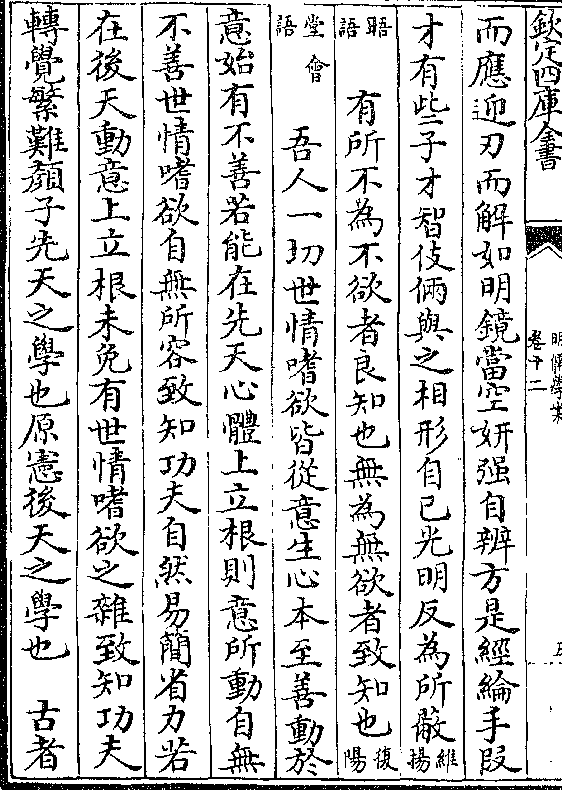 欽定四庫全書
明儒學案
卷十二
而應迎刃而解如明鏡當空妍强自辨方是經綸手段
才有些子才智伎倆與之相形自己光明反為所蔽維揚
晤語
有所不為不欲者良知也無為無欲者致知也復陽
堂會語
吾人一切世情嗜欲皆從意生心本至善動於
意始有不善若能在先天心體上立根則意所動自無
不善世情嗜欲自無所容致知功夫自然易簡省力若
在後天動意上立根未免有世情嗜欲之雜致知功夫
轉覺繁難顔子先天之學也原憲後天之學也　古者